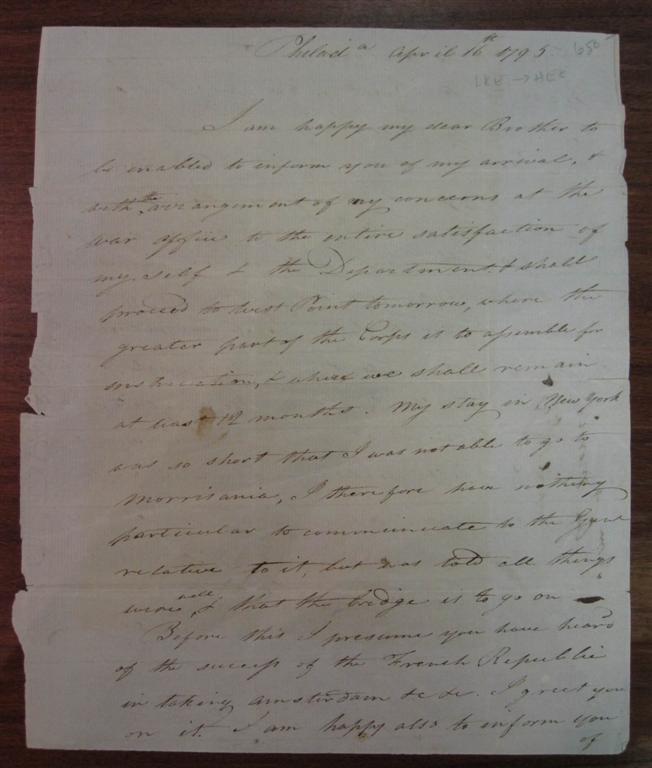 Philad a April 16th 1795.
650
LRE → HER
I am happy my dear Brother to
be enabled to inform you of my arrival, &
with the arrangement of my concerns at the
war office to the entire satisfaction of
my self & the Department & shall
proceed to West Point tomorrow, where the
greater part of the Corps is to assemble for
instruction, & where we shall remain
at least 12 months. My stay in New York
was so short that I was not able to go to
Morrisania, I therefore have nothing
particular to communicate to the
relative to it, but was told all things
were well, & that the bridge is to go on
Before this I presume you have heard
of the success of the French Republic
in taking Amsterdam &c &c. I greet you
on it. I am happy also to inform you
of